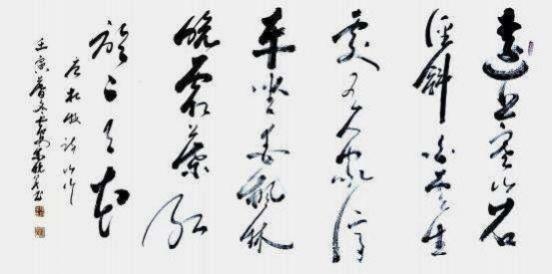 遠上寒山石
徑斜白雲生
處有人家停
車坐愛楓林
晚霜葉紅
於二月花
杜牧詩山行
壬寅